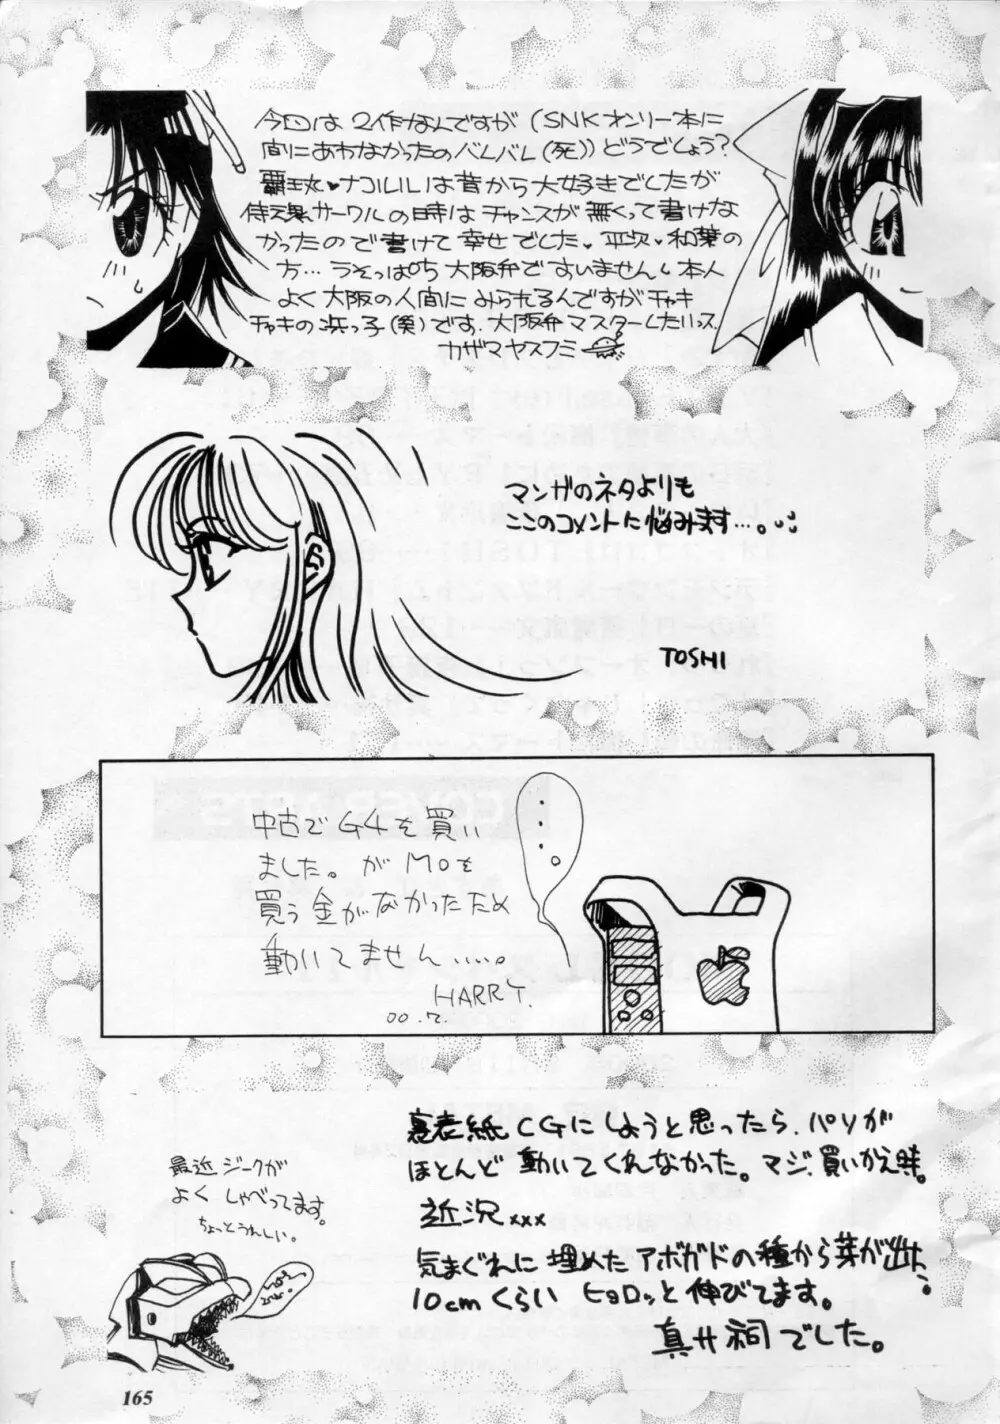 今回は2作なんですが(SNKオンリー本に
間にあわなかったのバレバレ(死))どうでしょう?
覇王丸♥ナコルルは昔から大好きでしたが
侍魂サークルの時はチャンスが無くって書けな
かったので書けて幸せでした♥平次♥和葉の
方…うそっぱち大阪弁ですいません 本人
よく大阪の人間にみられるんですがチャキ
チャキの浜っ子(笑)です.大阪弁マスターしたいっス
カザマヤスフミ
マンガのネタよりも
ここのコメントに悩みます…。
TOSHI
中古でG4を買い
ました。がMOを
買う金がなかったため
動いてません.....。
HARRY.
00.7.
裏表紙CGにしようと思ったら、パソが
ほとんど動いてくれなかった。マジ、買いかえ時。
近況xxx
気まぐれに埋めたアボガドの種から芽が出た
10cmくらいヒョロッと伸びてます。
真サ祠でした。
最近ジークが
よくしゃべってます。
ちょっとうれしい。
165